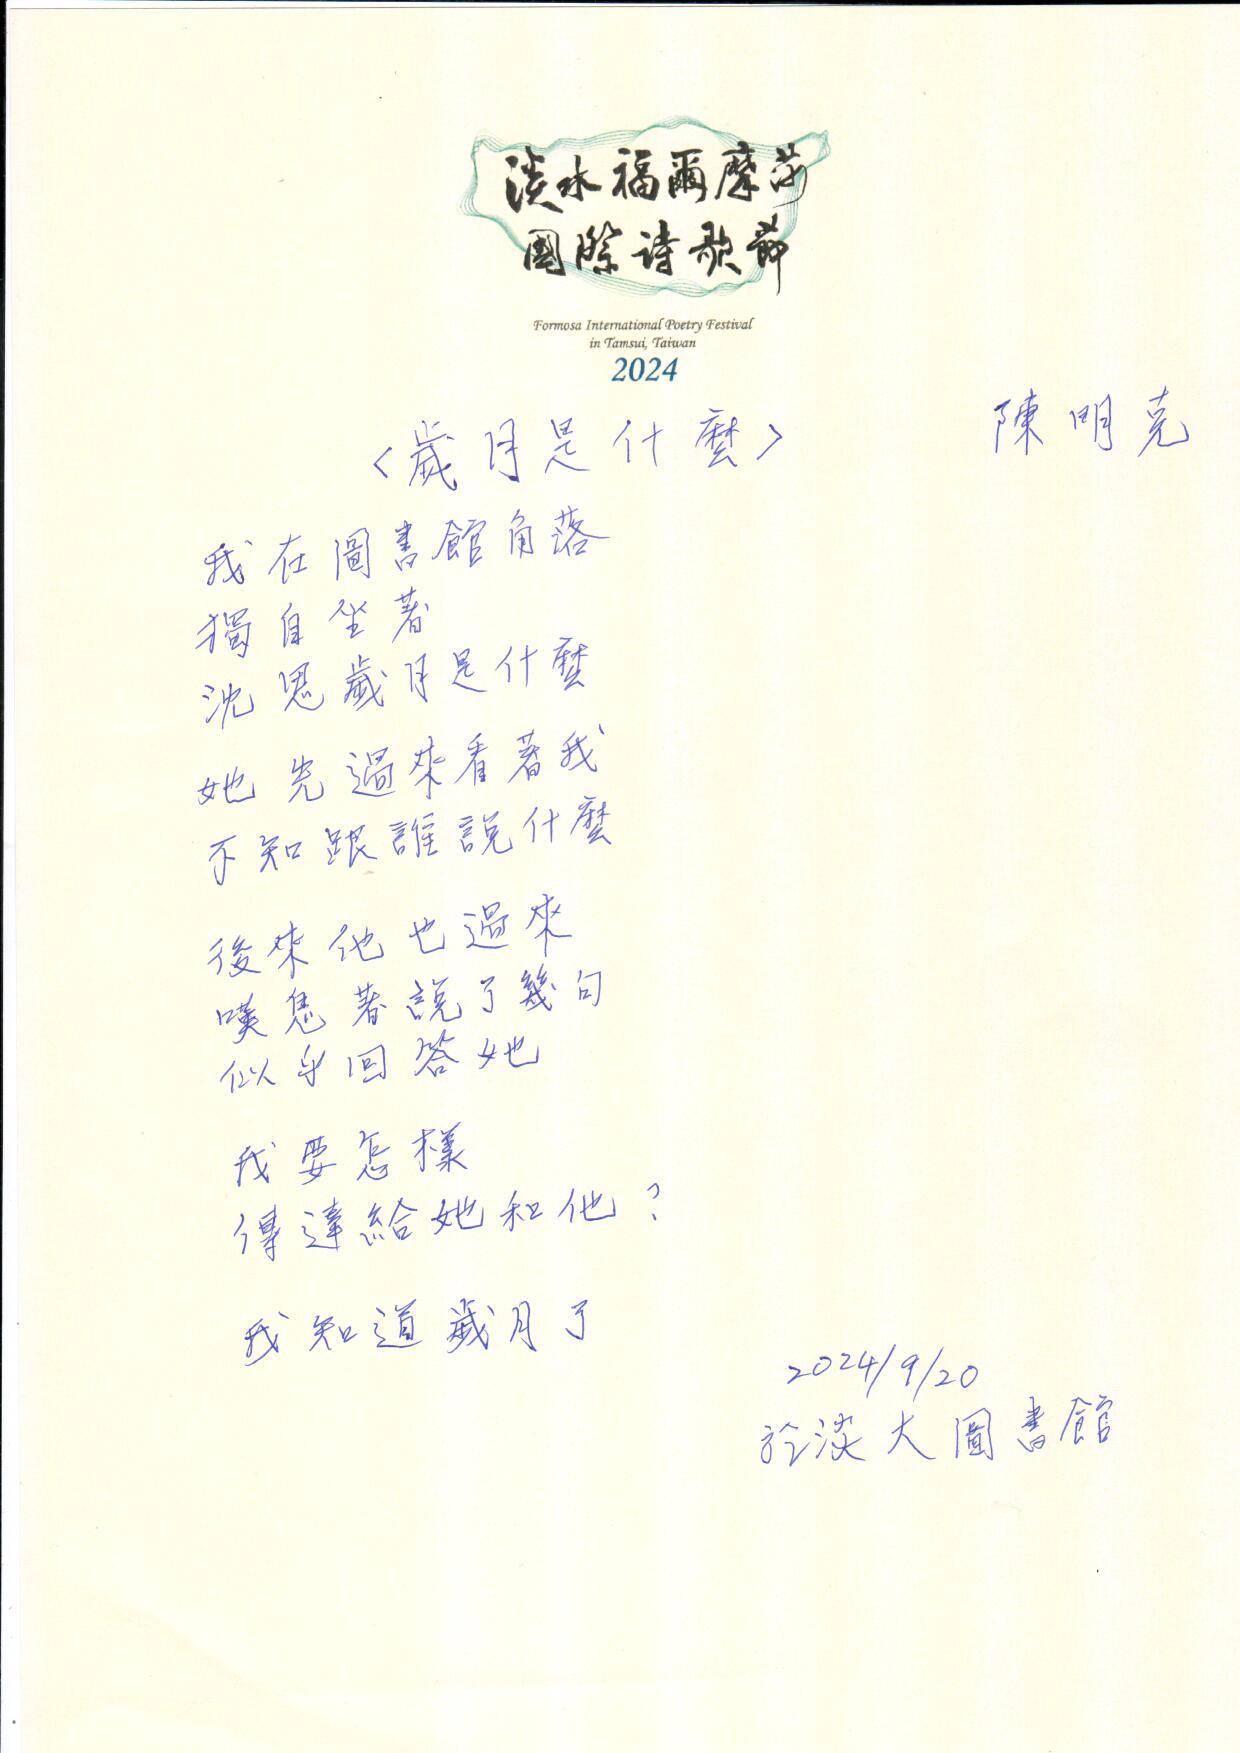 淡水福爾摩莎
國際詩歌節
Formosa International Poetry Festival
in Tamsui, Taiwan
2024
〈歲月是什麼〉 陳明克
我在圖書館角落
獨自坐著
沈思歲月是什麼
她先過來看著我
不知跟誰說什麼
後來他也過來
嘆息著說了幾句
似乎回答她
我要怎樣
傳達給她和他？
我知道歲月了
2024/9/20
於淡大圖書館